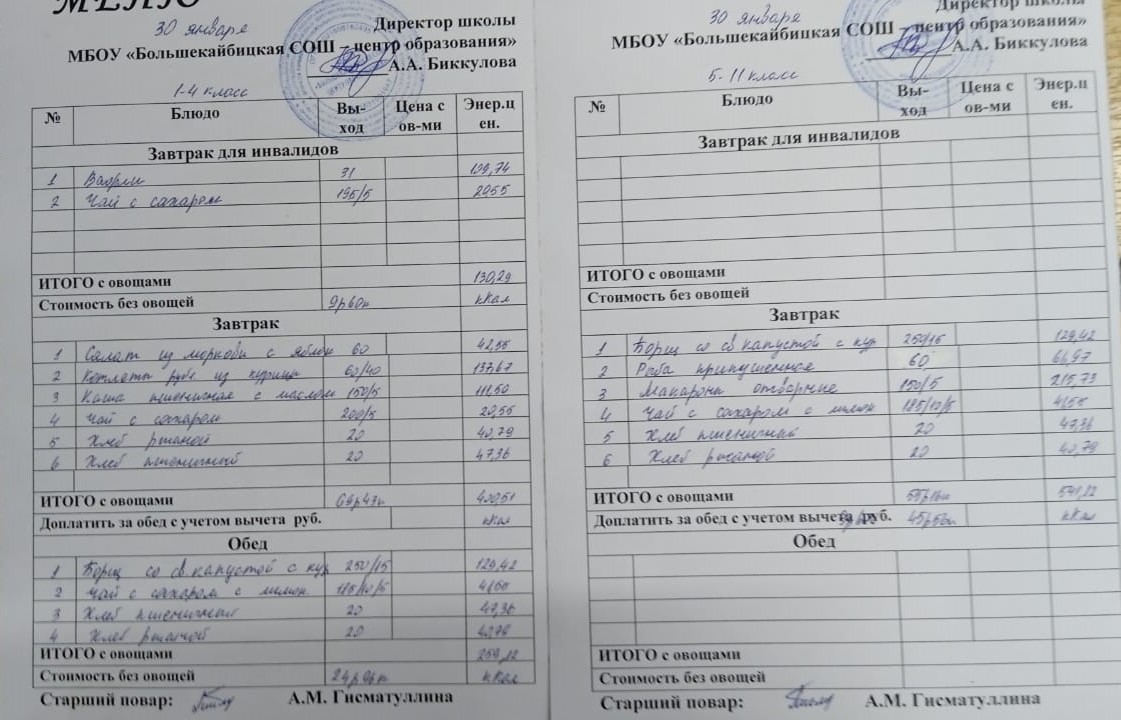 МЕНЮ
30 января
Директор школы
МБОУ «Большекайбицкая СОШ – центр образования»
А.А. Биккулова
1-4 класс
№ Блюдо Вы-ход Цена с ов-ми Энер.цен.
Завтрак для инвалидов
1 Вафли 31
2 Чай с сахаром 195/5
ИТОГО с овощами 130,29
Стоимость без овощей 9р60к ккал
Завтрак
1 Салат из моркови с яблок 60
2 Котлеты из курицы 60/40 137,67
3 Каша пшеничная с маслом 150/5 111,50
4 Чай с сахаром 200/5
5 Хлеб ржаной 20 40,79
6 Хлеб пшеничный 20 47,36
ИТОГО с овощами 69р43к
Доплатить за обед с учетом вычета руб. ккал
Обед
1 Борщ со св.капустой с кур 250/15 129,42
2 Чай с сахаром с лимон.
3 Хлеб пшеничный 20 47,36
4 Хлеб ржаной 20 40,79
ИТОГО с овощами 259,12
Стоимость без овощей ккал
Старший повар: А.М. Гисматуллина
30 января
Директор школы
МБОУ «Большекайбицкая СОШ – центр образования»
А.А. Биккулова
5-11 класс
№ Блюдо Вы-ход Цена с ов-ми Энер.цен.
Завтрак для инвалидов
ИТОГО с овощами
Стоимость без овощей
Завтрак
1 Борщ со св.капустой с кур 250/15 129,42
2 Рыба припущенное 60
3 Макароны отварные 150/5 215,73
4 Чай с сахаром с лимон
5 Хлеб пшеничный 20 47,36
6 Хлеб ржаной 20 40,79
ИТОГО с овощами
Доплатить за обед с учетом вычета руб. ккал
Обед
ИТОГО с овощами
Стоимость без овощей
Старший повар: А.М. Гисматуллина